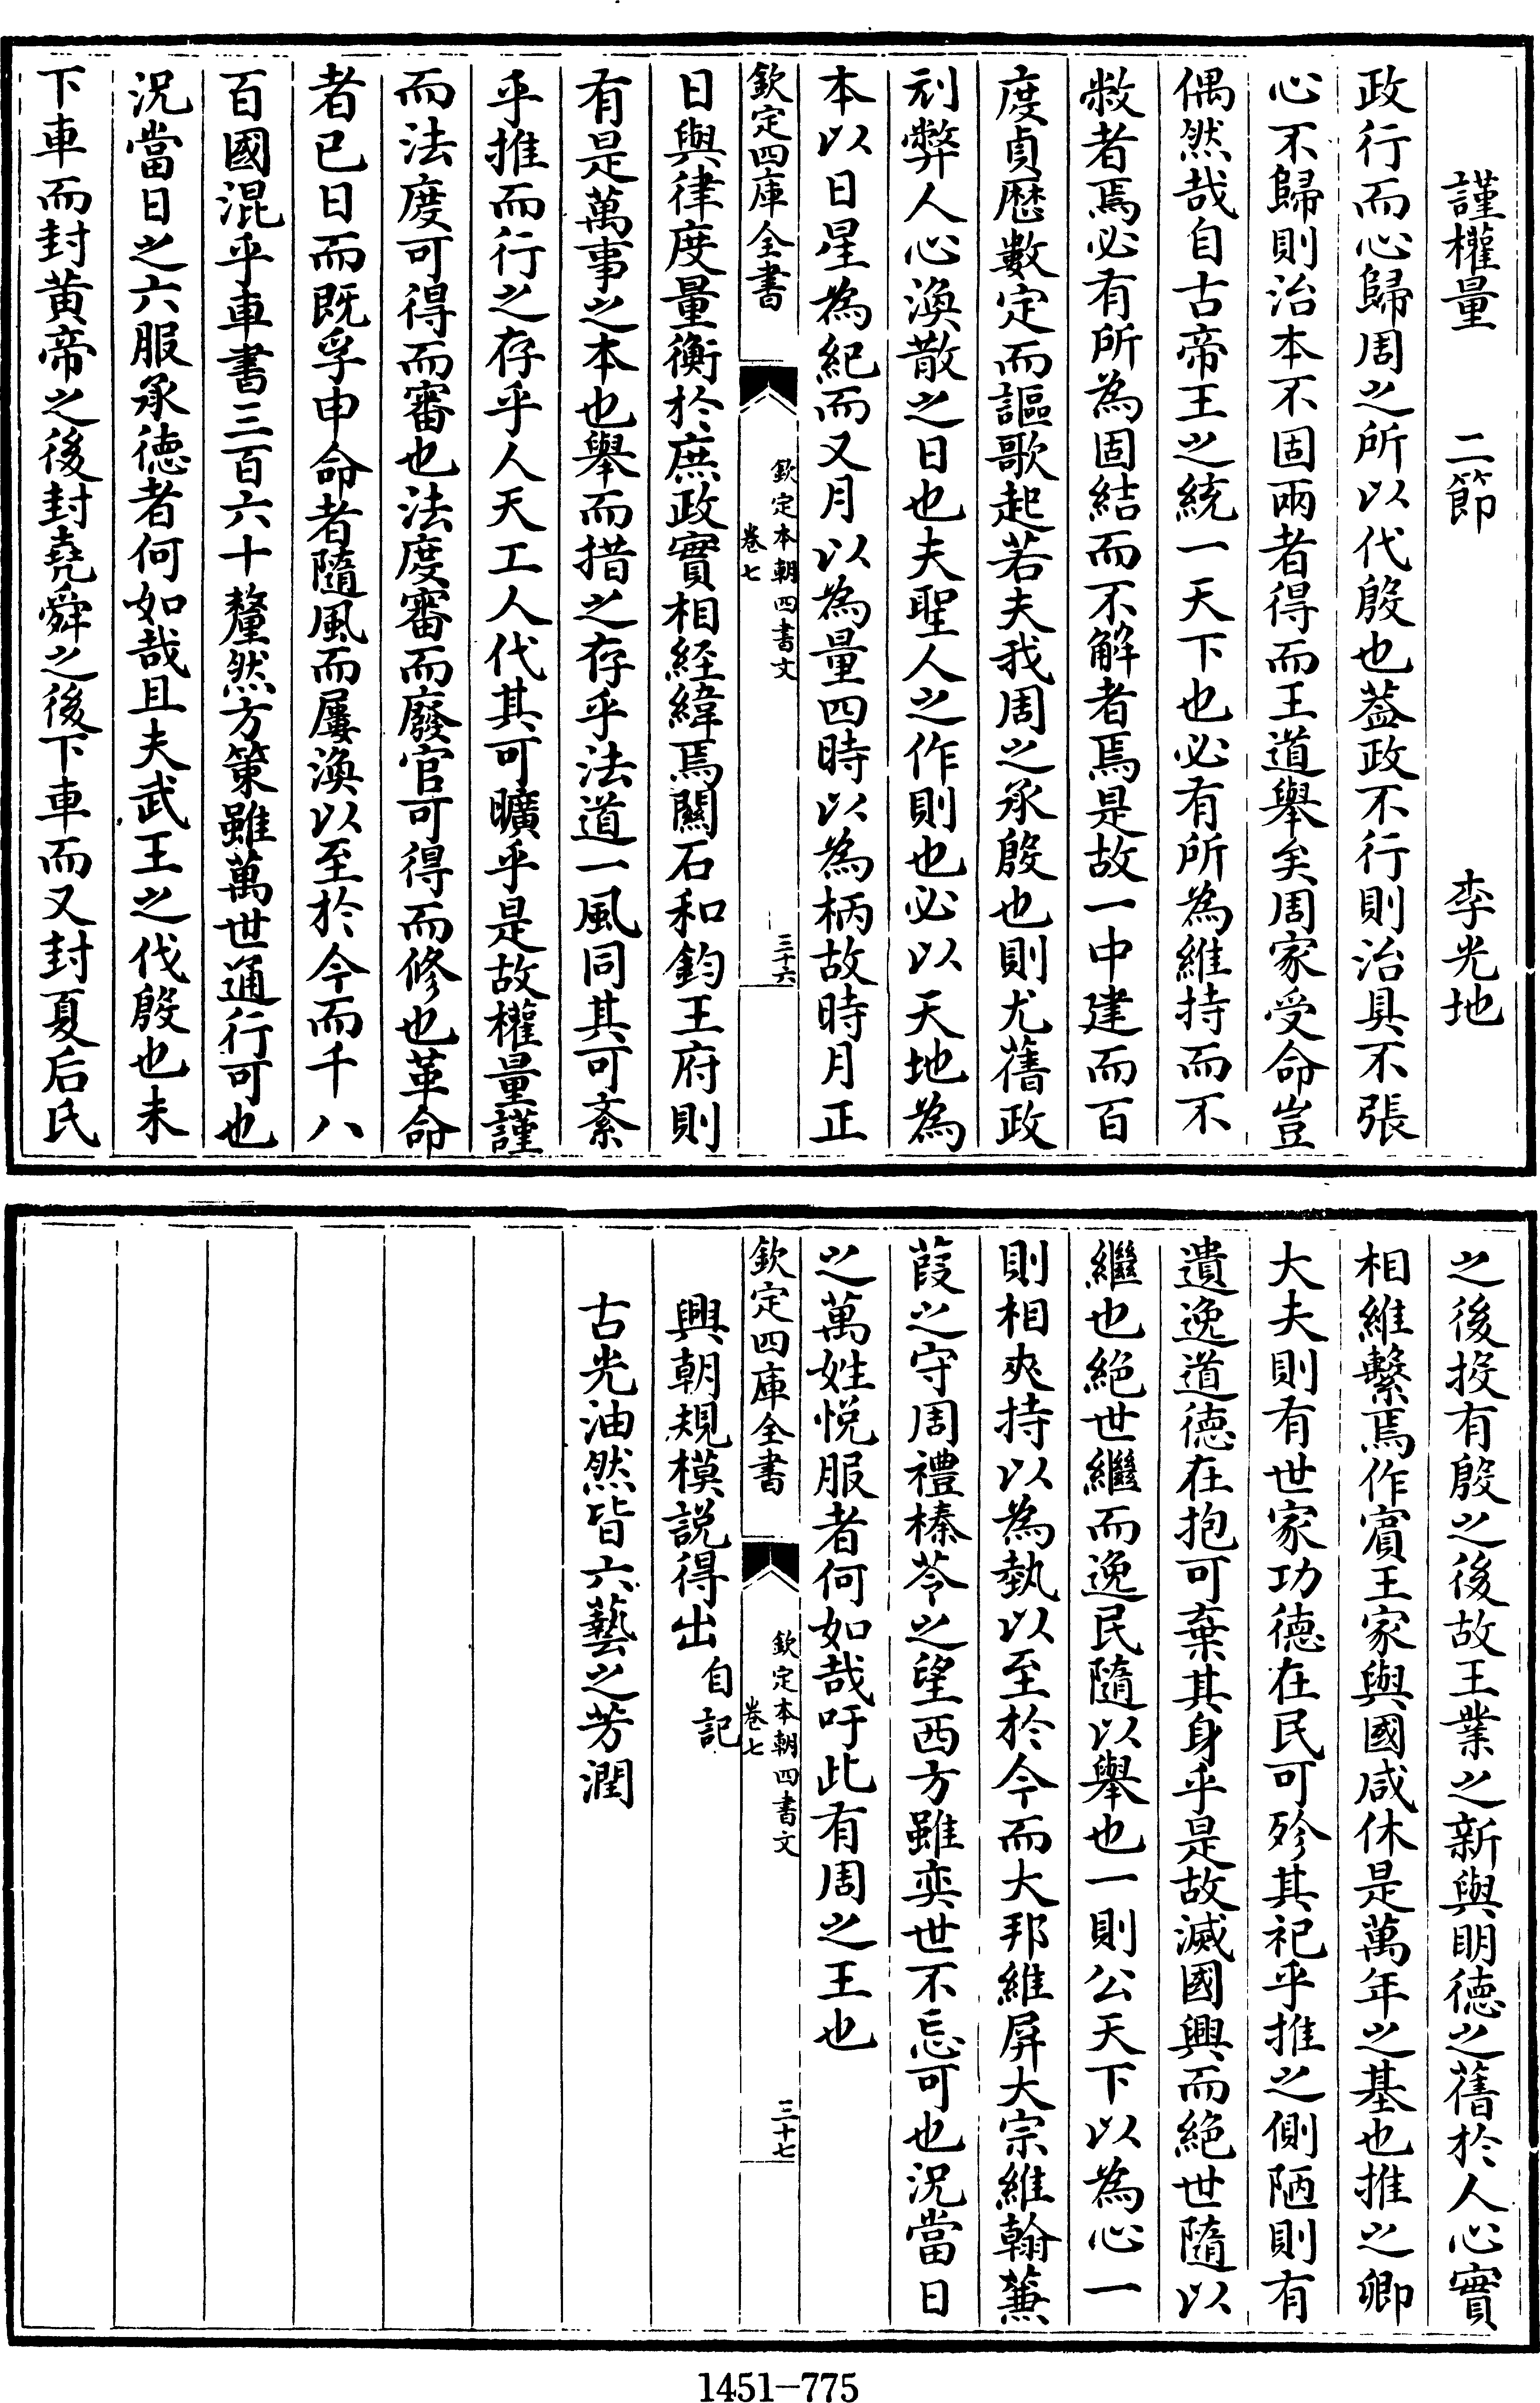 謹權量　二節　李光地
政行而心歸周之所以代殷也葢政不行則治具不張
心不歸則治本不固兩者得而王道舉矣周家受命豈
偶然哉自古帝王之統一天下也必有所為維持而不
敝者焉必有所為固結而不解者焉是故一中建而百
度貞歴數定而謳歌起若夫我周之承殷也則尤舊政
刓弊人心渙散之日也夫聖人之作則也必以天地為
本以日星為紀而又月以為量四時以為柄故時月正
欽定四庫全書
欽定本朝四書文
卷七
三十六
日與律度量衡於庶政實相經緯焉關石和鈞王府則
有是萬事之本也舉而措之存乎法道一風同其可紊
乎推而行之存乎人天工人代其可曠乎是故權量謹
而法度可得而審也法度審而廢官可得而修也革命
者已日而既孚申命者隨風而屢渙以至於今而千八
百國混乎車書三百六十釐然方策雖萬世通行可也
況當日之六服承徳者何如哉且夫武王之伐殷也未
下車而封黄帝之後封堯舜之後下車而又封夏后氏
之後投有殷之後故王業之新與明徳之舊於人心實
相維繫焉作賓王家與國咸休是萬年之基也推之卿
大夫則有世家功徳在民可殄其祀乎推之側陋則有
遺逸道徳在抱可棄其身乎是故滅國興而絶世隨以
繼也絶世繼而逸民隨以舉也一則公天下以為心一
則相夾持以為埶以至於今而大邦維屏大宗維翰蒹
葭之守周禮榛苓之望西方雖奕世不忘可也況當日
之萬姓悦服者何如哉吁此有周之王也
欽定四庫全書
欽定本朝四書文
卷七
三十七
興朝規模説得出自記
古光油然皆六藝之芳潤
1451-775